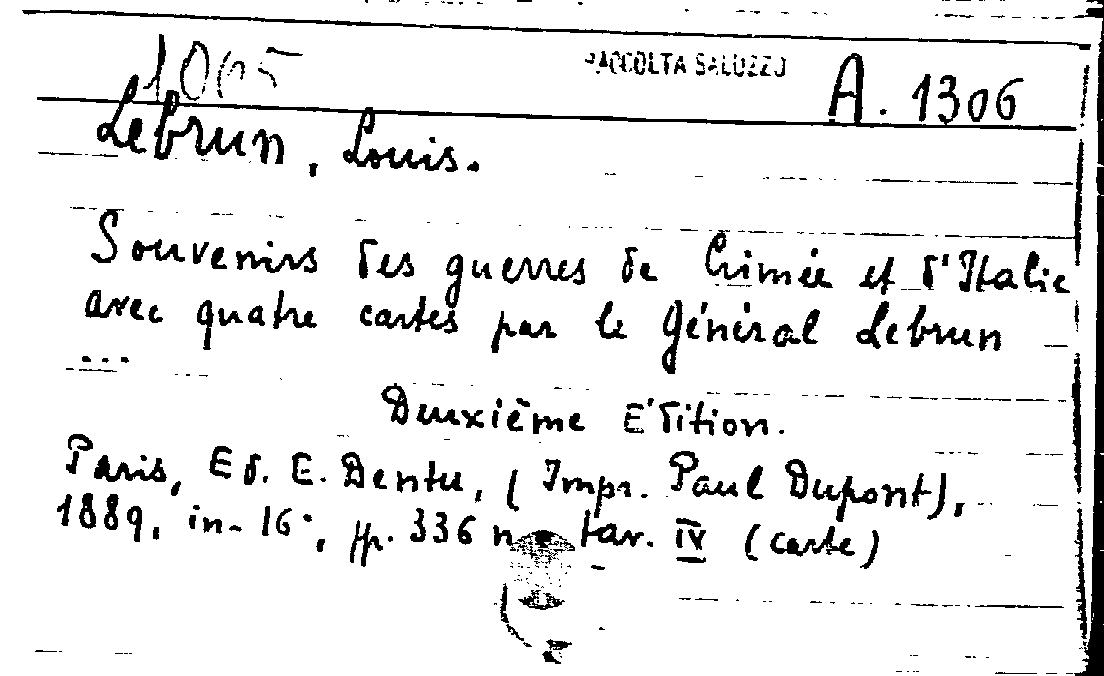 1065 RACCOLTA SALUZZO A. 1306
Lebrun, Louis.
Souvenirs des guerres de Crimée et d'Italie
avec quatre cartes par le Général Lebrun
...
Deuxième Edition.
Paris, Ed. E. Dentu, (Impr. Paul Dupont),
1889, in-16°, pp. 336 n. tav. IV (carte)